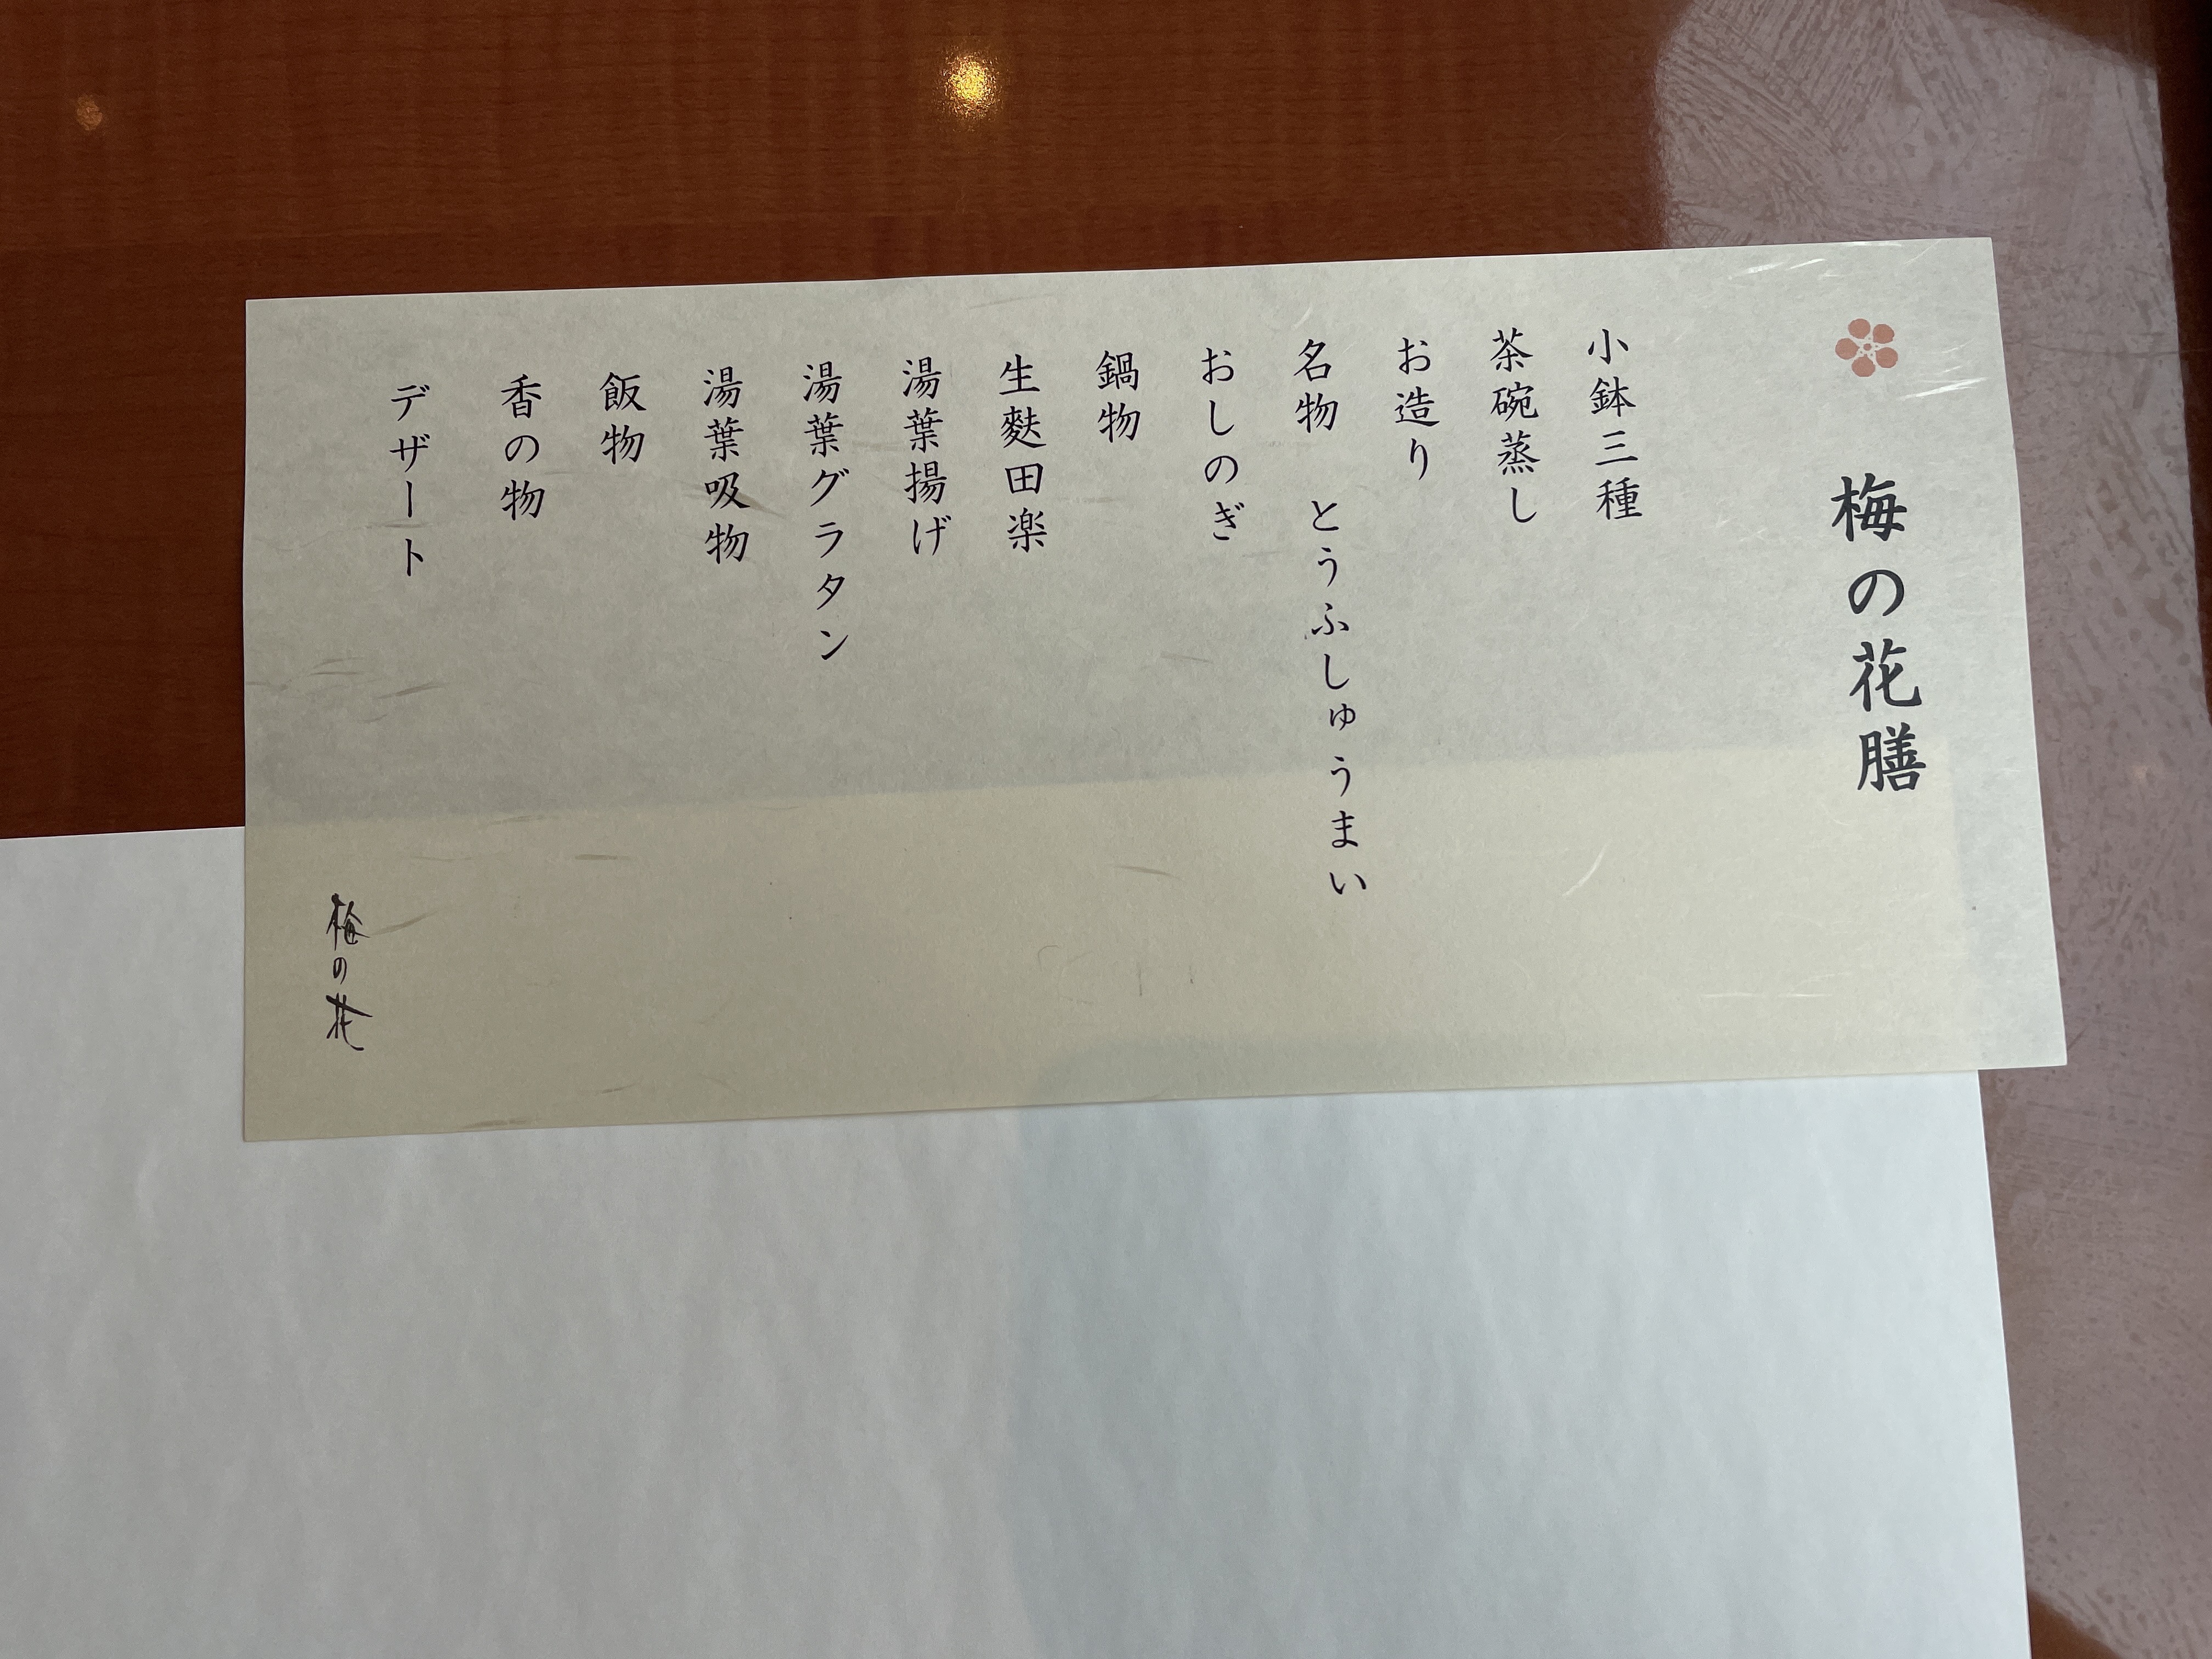 梅の花膳
小鉢三種
茶碗蒸し
お造り
名物 とうふしゅうまい
おしのぎ
鍋物
生麩田楽
湯葉揚げ
湯葉グラタン
湯葉吸物
飯物
香の物
デザート
梅の花